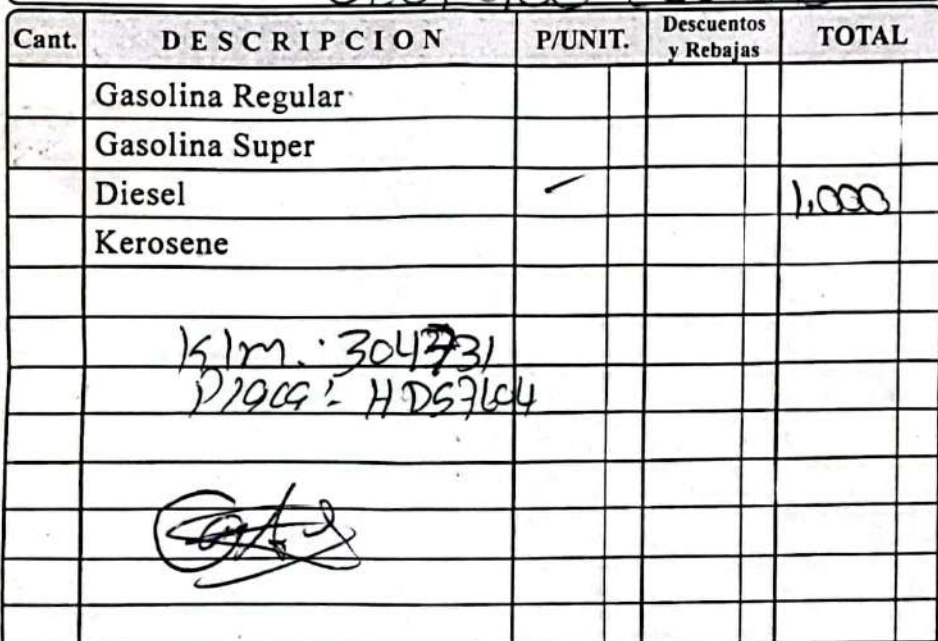 Cant. DESCRIPCION P/UNIT. Descuentos y Rebajas TOTAL
Gasolina Regular
Gasolina Super
Diesel 1,000
Kerosene
Klm.: 304731
Placa: HDS7604